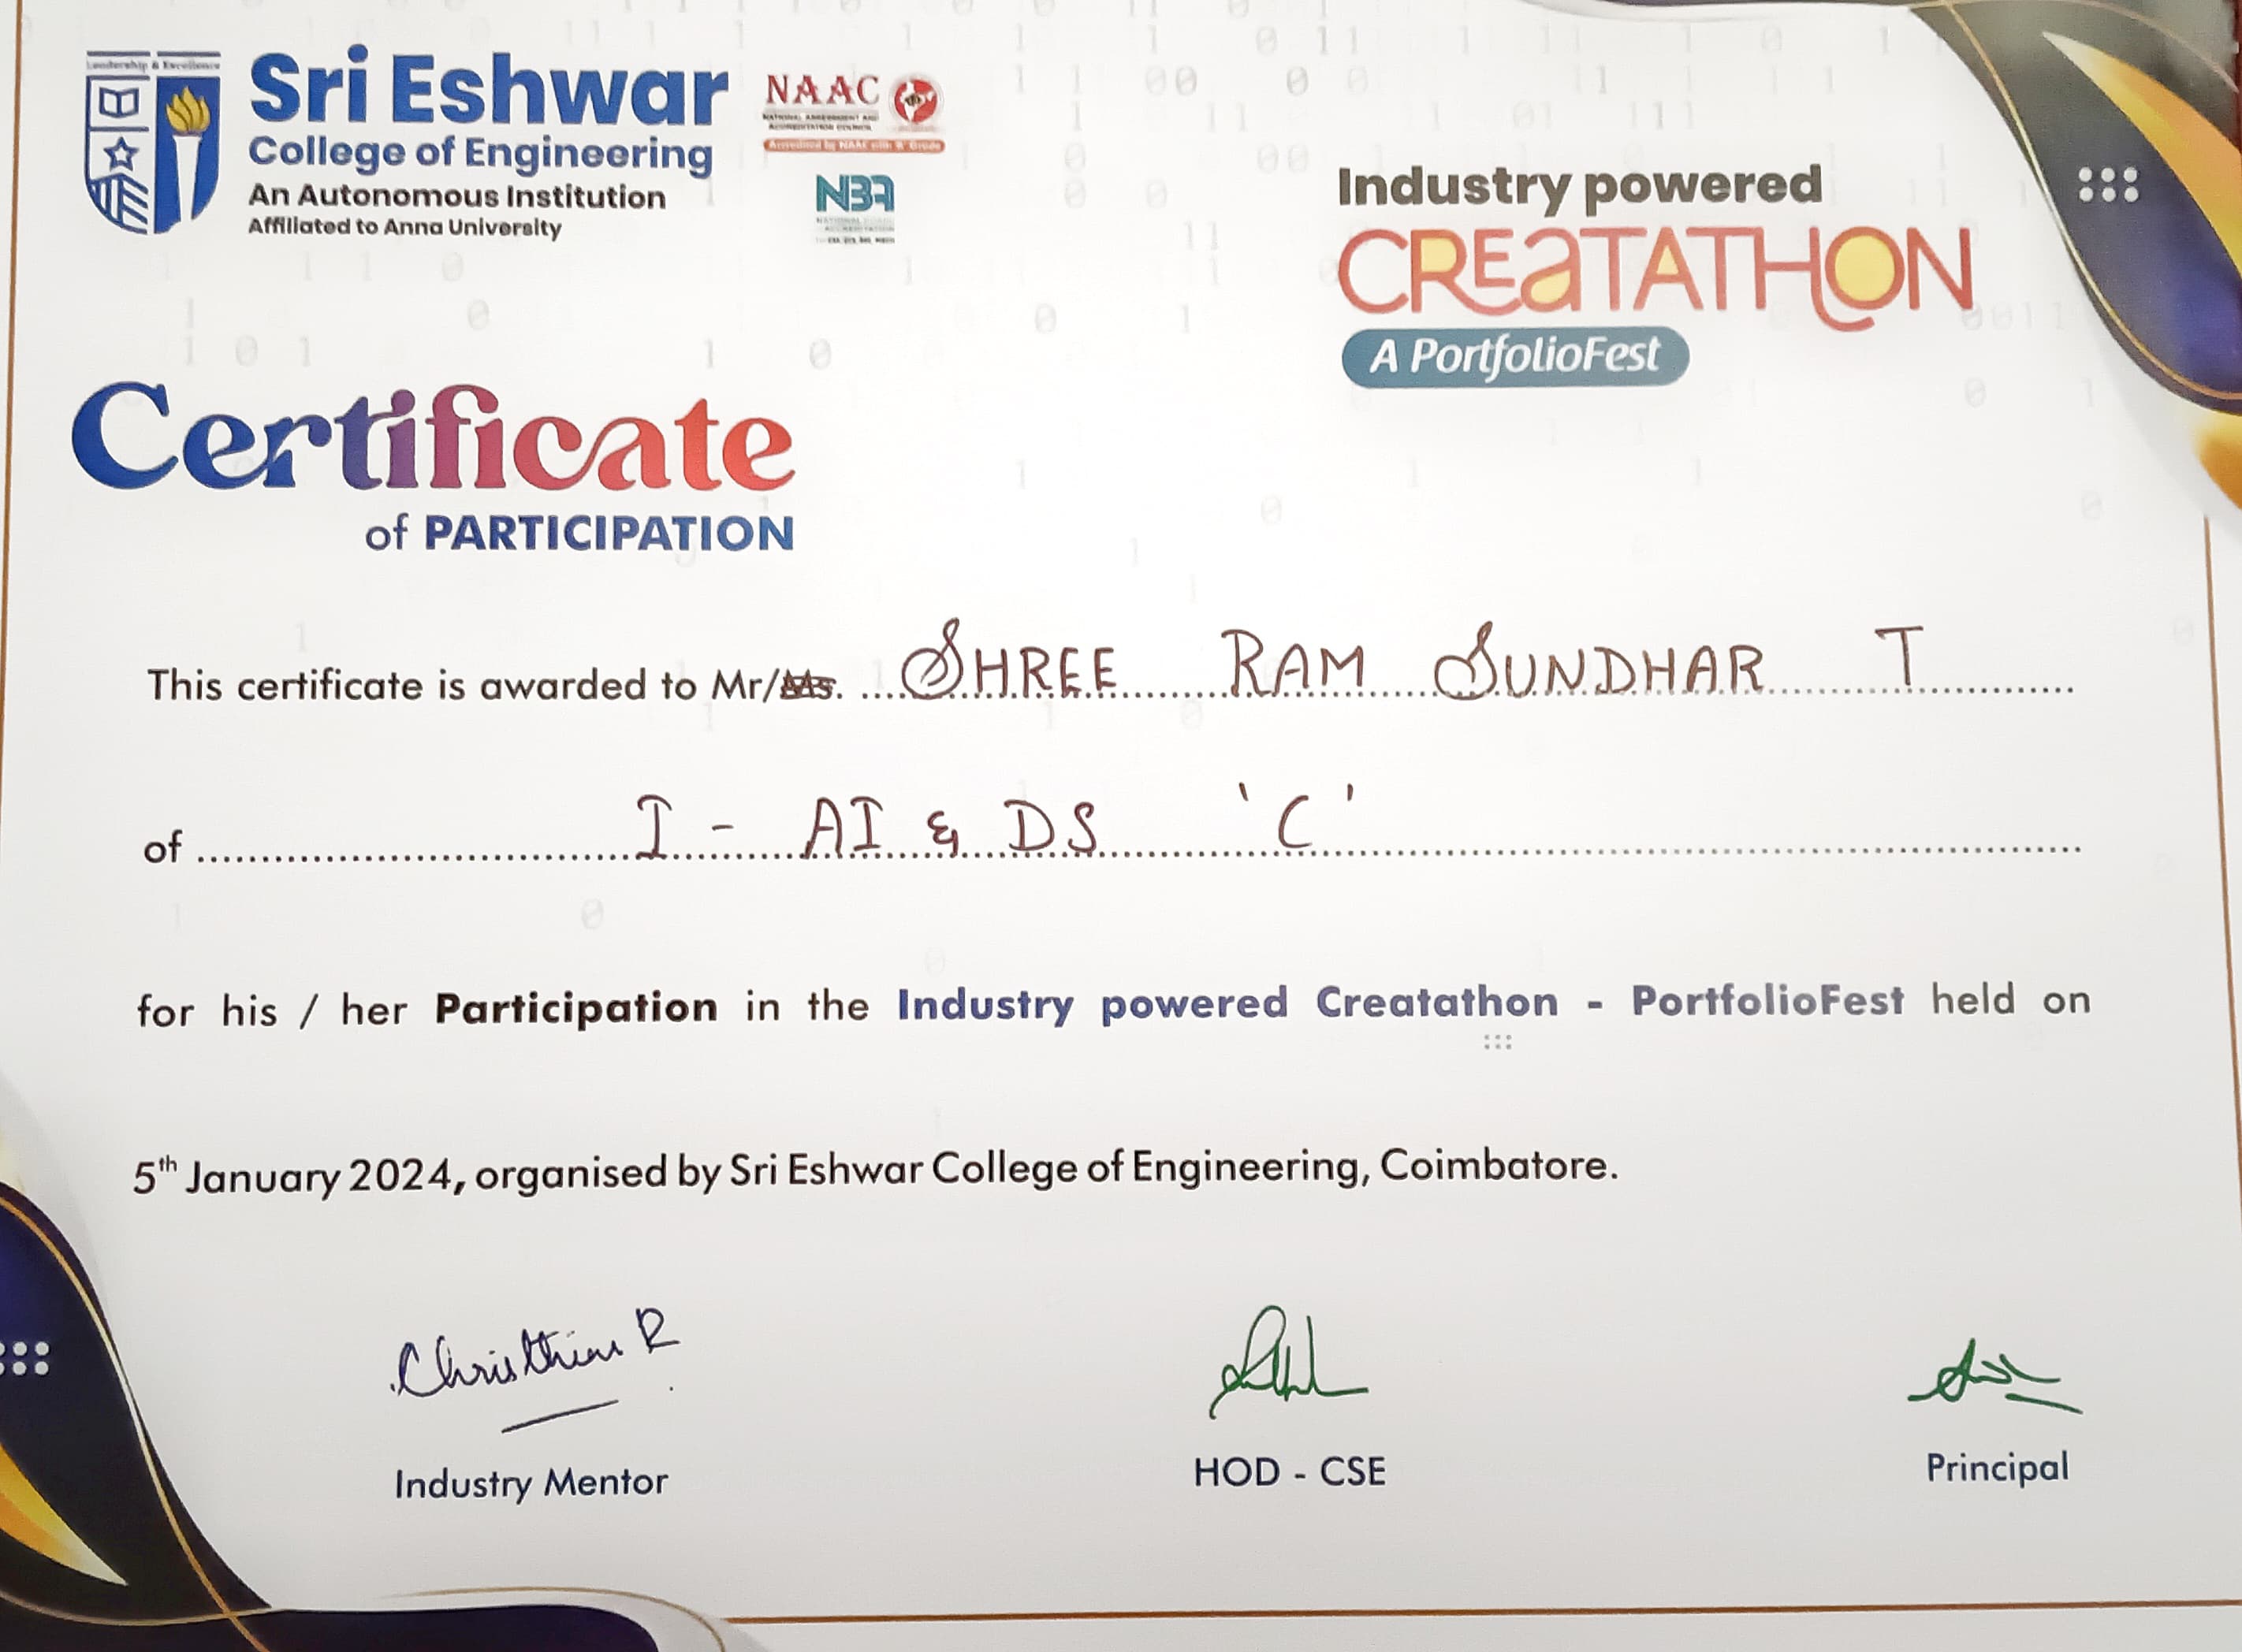 Leadership & Excellence
Sri Eshwar
College of Engineering
An Autonomous Institution
Affiliated to Anna University
NAAC
NATIONAL ASSESSMENT AND
ACCREDITATION COUNCIL
Accredited by NAAC with 'A' Grade
NBA
NATIONAL BOARD
ACCREDITATION
Industry powered
CREaTATHON
A PortfolioFest
Certificate
of PARTICIPATION
This certificate is awarded to Mr/Ms. SHREE RAM SUNDHAR T
of I - AI & DS 'C'
for his / her Participation in the Industry powered Creatathon - PortfolioFest held on
5th January 2024, organised by Sri Eshwar College of Engineering, Coimbatore.
R
Industry Mentor
HOD - CSE
Principal